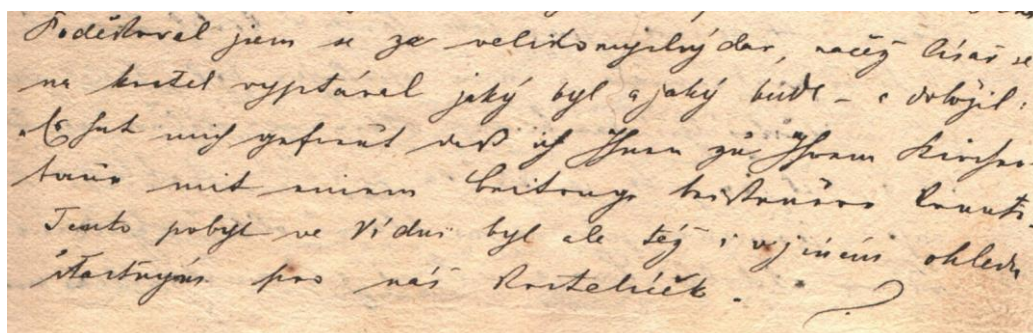 Poděkoval jsem se za velikomyslný dar, načež císař se
na kostel vyptával jaký byl a jaký bude – a doložil:
„Es hat mich gefreut daß ich Ihnen zu Ihrem Kirchen-
bau mit einem Beitrage beisteuern konnte.
Tento pobyt ve Vídni byl ale též i v jiném ohledu
šťastným pro náš kostelíček.